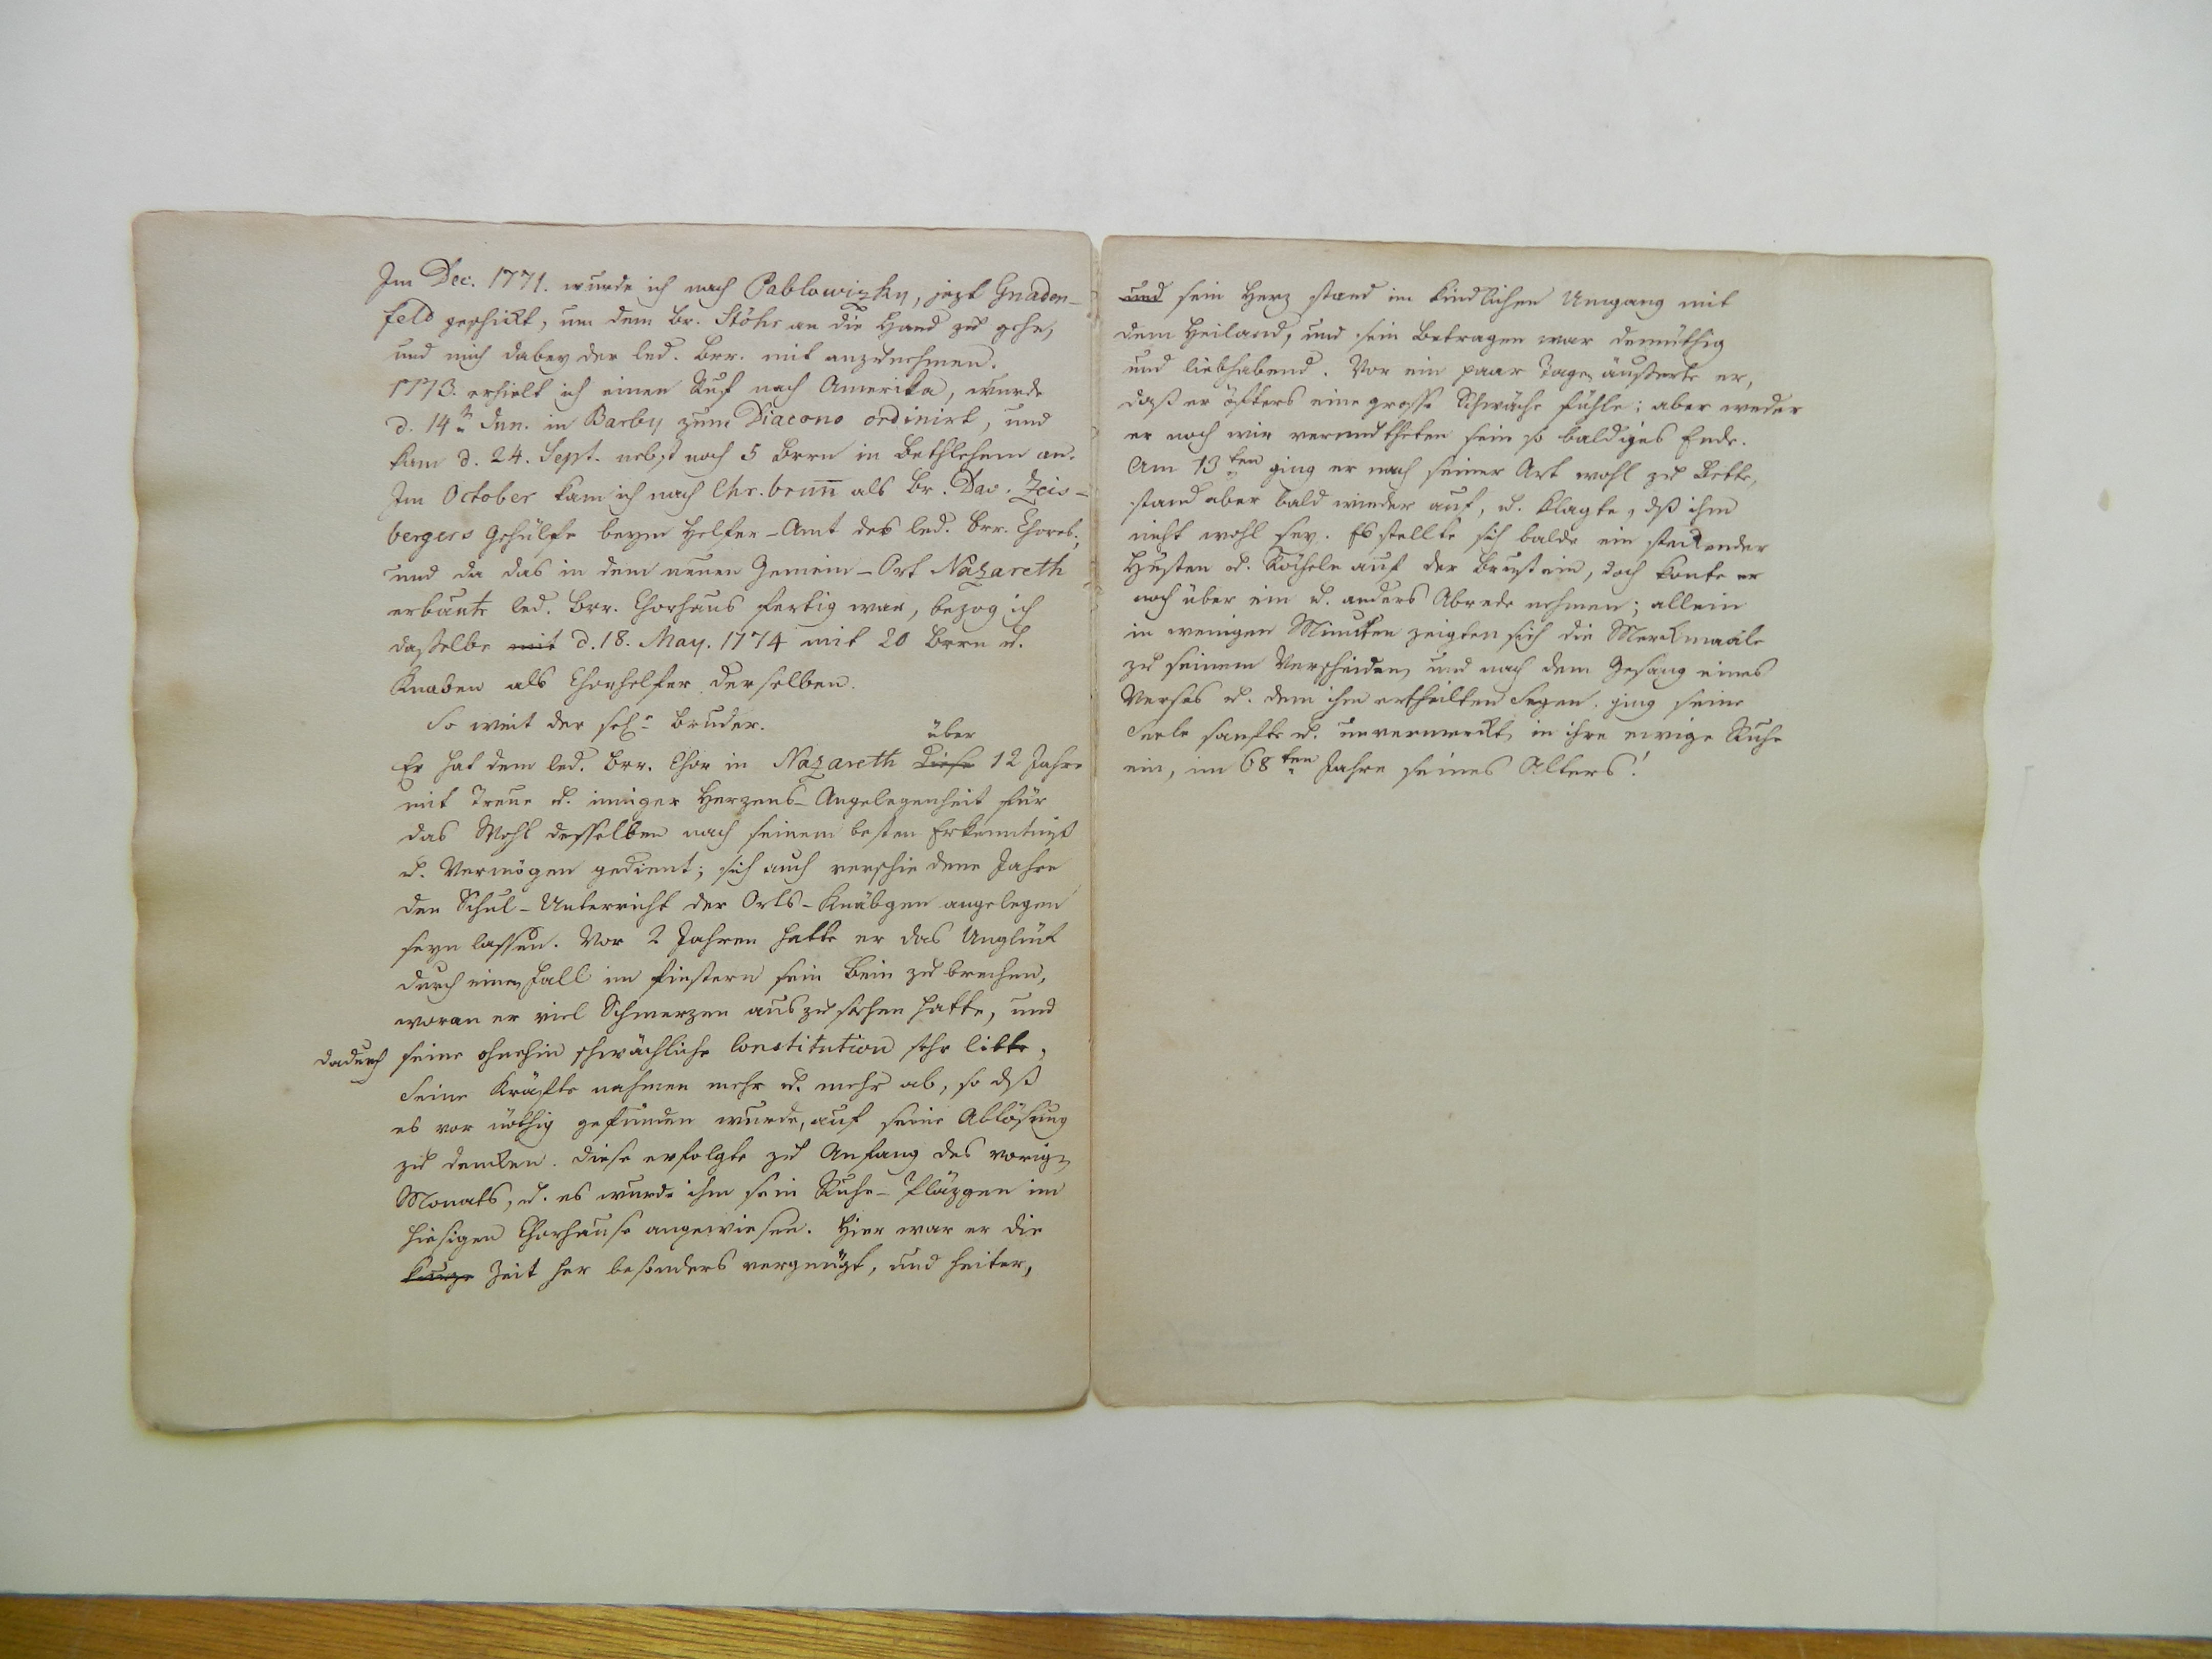 Im Dec. 1771. wurde ich nach Pablowizky, jezt Gnaden-
feld geschikt, um dem Br. Stöhr an die Hand zu gehe,
und mich dabey der led. Brr. mit anzunehmen.
1773. erhielt ich einen Ruf nach Amerika, wurde
d. 14tn Jun. in Barby zum Diacono ordinirt, und
kam d. 24. Sept. nebst noch 5 Brrn in Bethlehem an.
Im October kam ich nach Chr.brunn als Br. Dav. Zeis-
bergers Gehülfe beym Helfer-Amt des led. Brr. Chores;
und da das in dem neuen Gemein-Ort Nazareth
erbaute led. Brr. Chorhaus fertig war, bezog ich
dasselbe mit d. 18. May. 1774 mit 20 Brrn u.
Knaben als Chorhelfer derselben.
So weit der sel. Bruder.
über
Er hat dem led. Brr. Chor in Nazareth diese 12 Jahre
mit Treue u. inniger Herzens-Angelegenheit für
das Wohl desselben nach seinem besten Erkenntniß
u. Vermögen gedient; sich auch verschiedene Jahre
den Schul-Unterricht der Orts-Knäbgen angelegen
seyn lassen. Vor 2 Jahren hatte er das Unglük
durch einen Fall im finstern sein Bein zu brechen,
woran er viel Schmerzen auszustehen hatte, und
dadurch seine ohnehin schwächliche Constitution sehr litte,
Seine Kräfte nahmen mehr u. mehr ab, so dß
es vor nöthig gefunden wurde, auf seine Ablösung
zu denken. Diese erfolgte zu Anfang des vorigen
Monats, u. es wurde ihm sein Ruhe-Pläzgen im
hiesigen Chorhause angewiesen. Hier war er die
kurze Zeit her besonders vergnügt, und heiter,
und sein Herz stand im kindlichen Umgang mit
dem Heiland, und sein Betragen war demüthig
und liebhabend. Vor ein paar Tagen äußerte er,
daß er öfters eine grosse Schwäche fühle; aber weder
er noch wir vermutheten sein so baldiges Ende.
Am 13ten ging er nach seiner Art wohl zu Bette,
stand aber bald wieder auf, u. klagte, dß ihm
nicht wohl sey. Es stellte sich balde ein stekender
Husten u. Röcheln auf der Brust ein, doch konte er
noch über ein u. anders Abrede nehmen; allein
in wenigen Minuten zeigten sich die Merkmaale
zu seinem Verscheiden, und nach dem Gesang eines
Verses u. dem ihm ertheilten Segen, ging seine
Seele sanfte u. unvermerkt, in ihre ewige Ruhe
ein, im 68ten Jahre seines Alters!